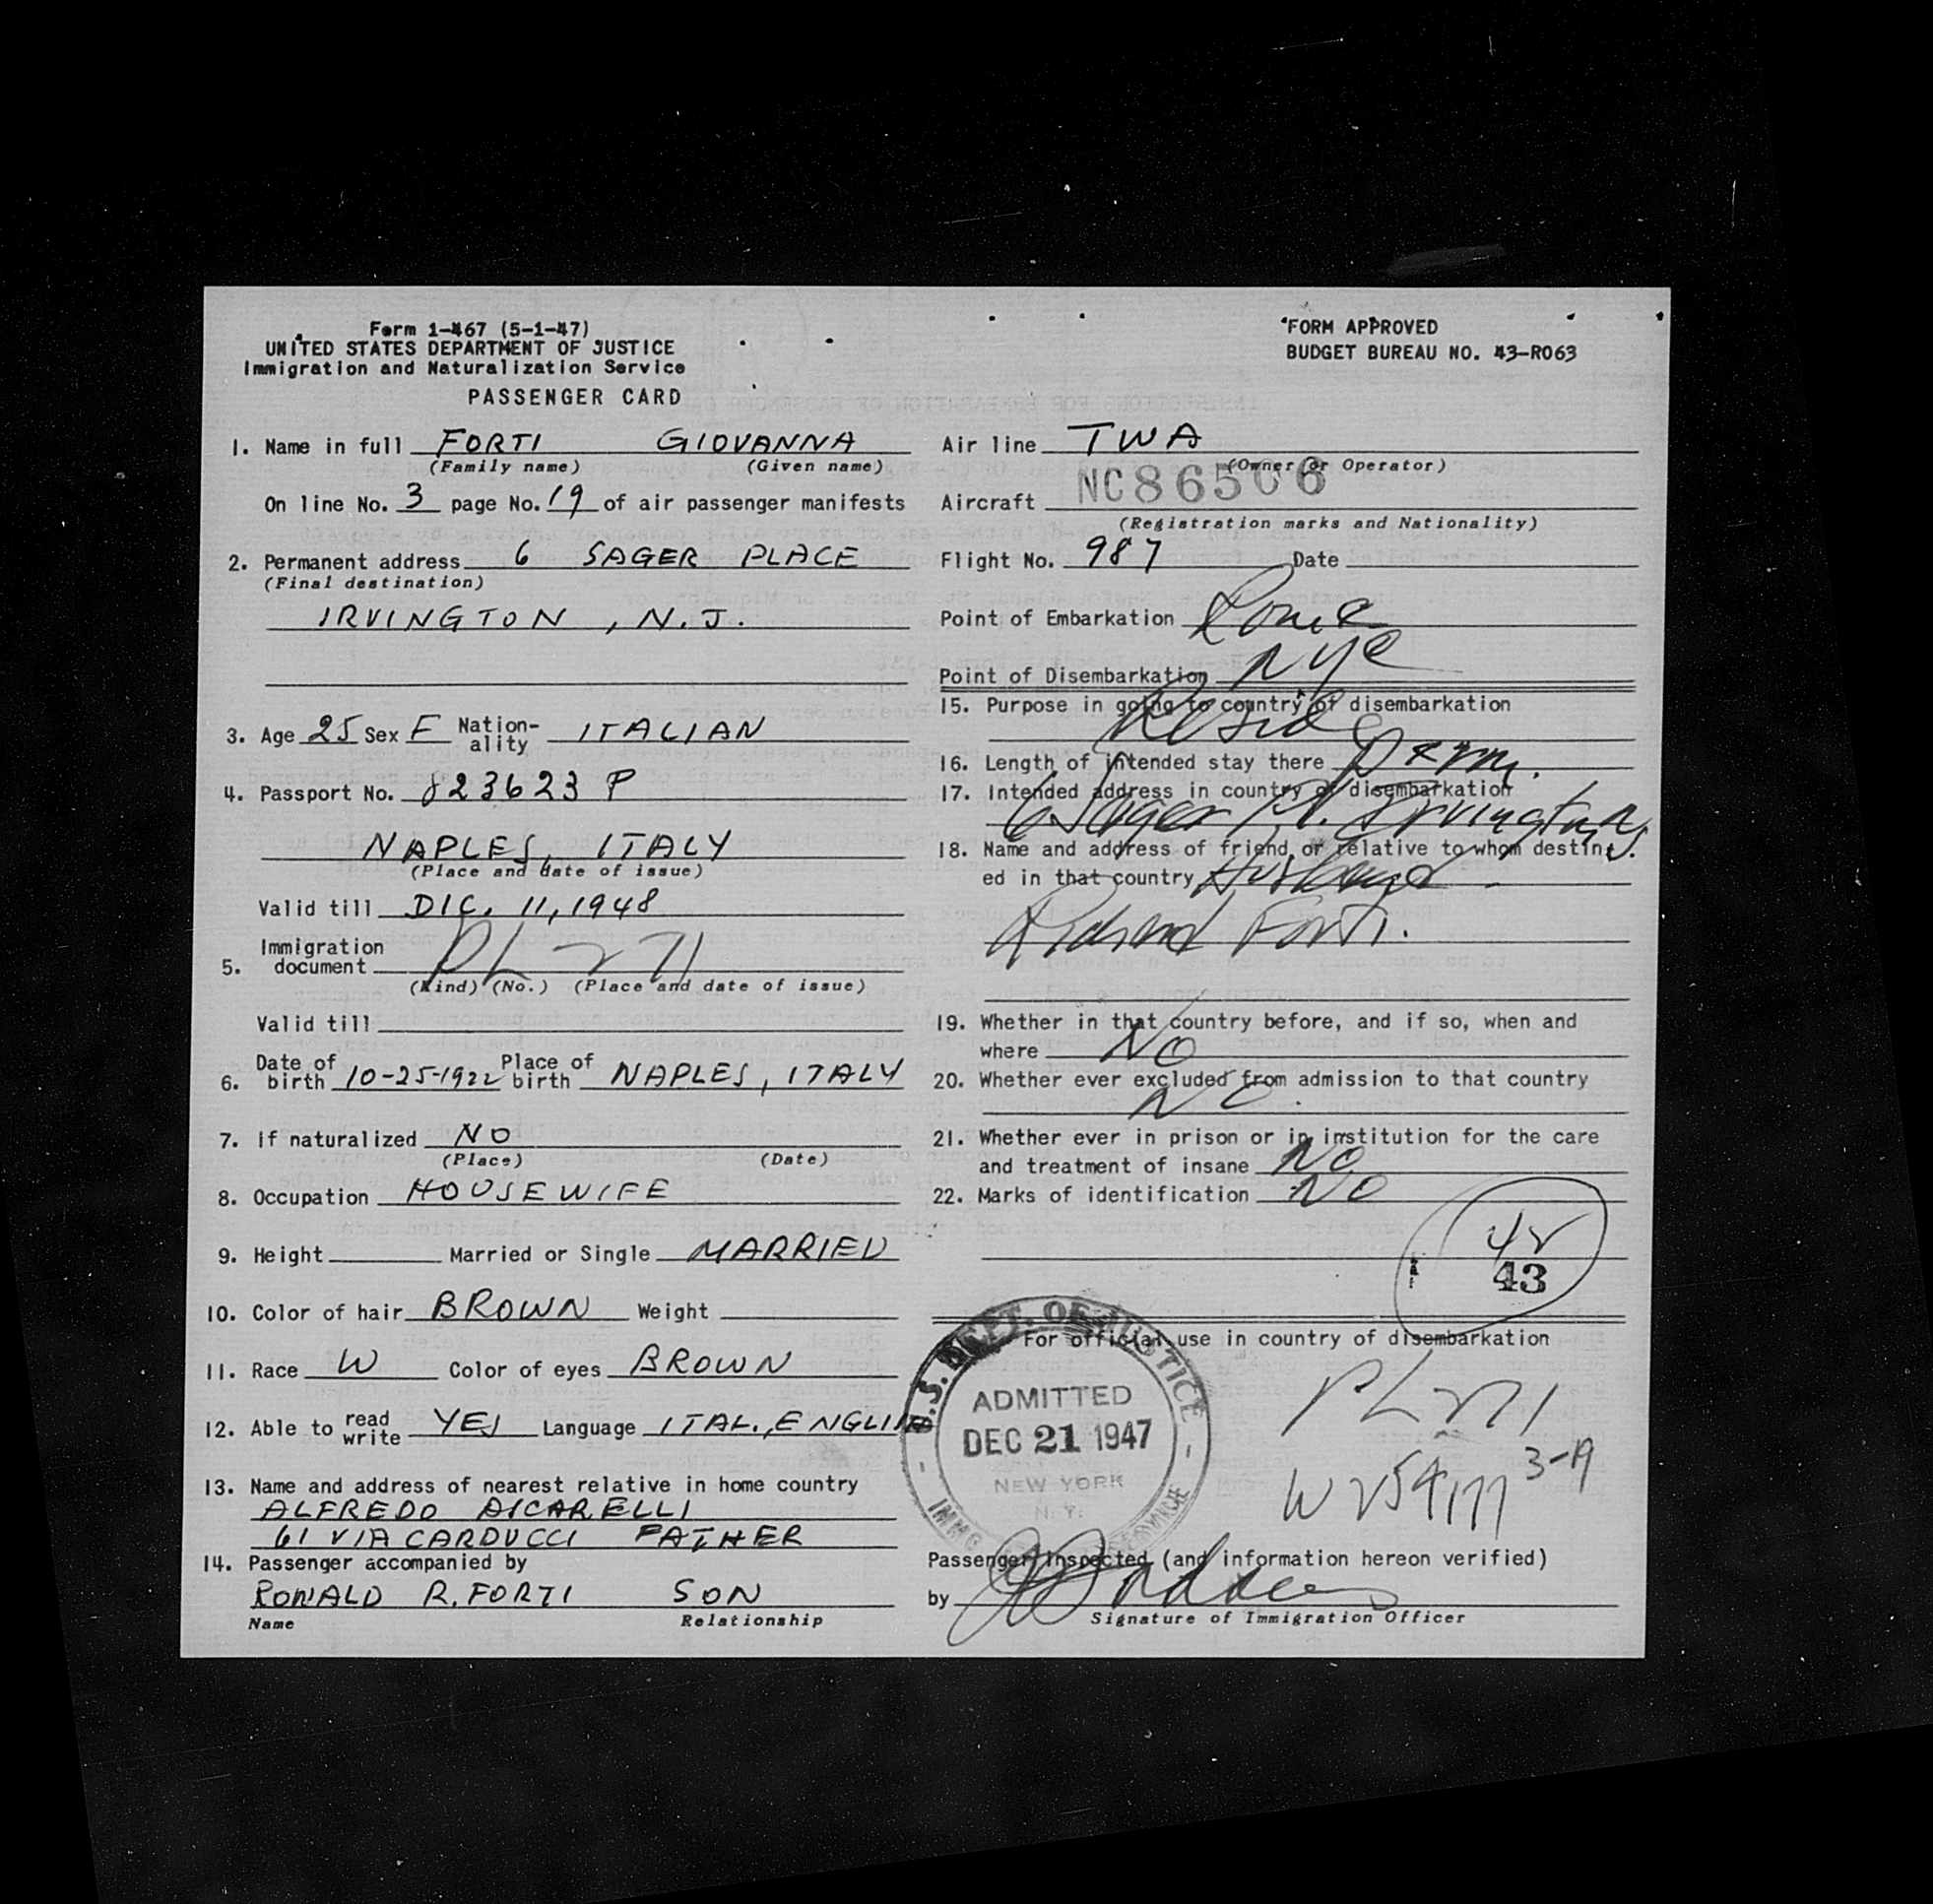 Form 1-467 (5-1-47)
UNITED STATES DEPARTMENT OF JUSTICE
Immigration and Naturalization Service
PASSENGER CARD
FORM APPROVED
BUDGET BUREAU NO. 43-R063
1. Name in full FORTI GIOVANNA
(Family name) (Given name)
On line No. 3 page No. 19 of air passenger manifests
2. Permanent address 6 SAGER PLACE
(Final destination)
IRVINGTON, N.J.
3. Age 25 Sex F Nation-ality ITALIAN
4. Passport No. 823623 P
NAPLES, ITALY
(Place and date of issue)
Valid till DIC. 11, 1948
5. Immigration document
(Kind) (No.) (Place and date of issue)
Valid till
6. Date of birth 10-25-1922 Place of birth NAPLES, ITALY
7. If naturalized NO
(Place) (Date)
8. Occupation HOUSEWIFE
9. Height Married or Single MARRIED
10. Color of hair BROWN Weight
11. Race W Color of eyes BROWN
12. Able to read write YES Language ITAL., ENGLISH
13. Name and address of nearest relative in home country
ALFREDO
61 VIA CARDUCCI FATHER
14. Passenger accompanied by
RONALD R. FORTI SON
Name Relationship
Air line TWA
(Owner or Operator)
Aircraft NC86506
(Registration marks and Nationality)
Flight No. 987 Date
Point of Embarkation Rome
Point of Disembarkation NYC
15. Purpose in going to country of disembarkation
Reside
16. Length of intended stay there Perm.
17. Intended address in country of disembarkation
6 Sager Pl. Irvington N.J.
18. Name and address of friend or relative to whom destin-
ed in that country Husband
Forti.
19. Whether in that country before, and if so, when and
where NO
20. Whether ever excluded from admission to that country
NO.
21. Whether ever in prison or in institution for the care
and treatment of insane NO
22. Marks of identification NO
43
For official use in country of disembarkation
U.S. DEPT. OF JUSTICE
ADMITTED
DEC 21 1947
NEW YORK
N. Y.
3-19
Passenger Inspected (and information hereon verified)
by
Signature of Immigration Officer